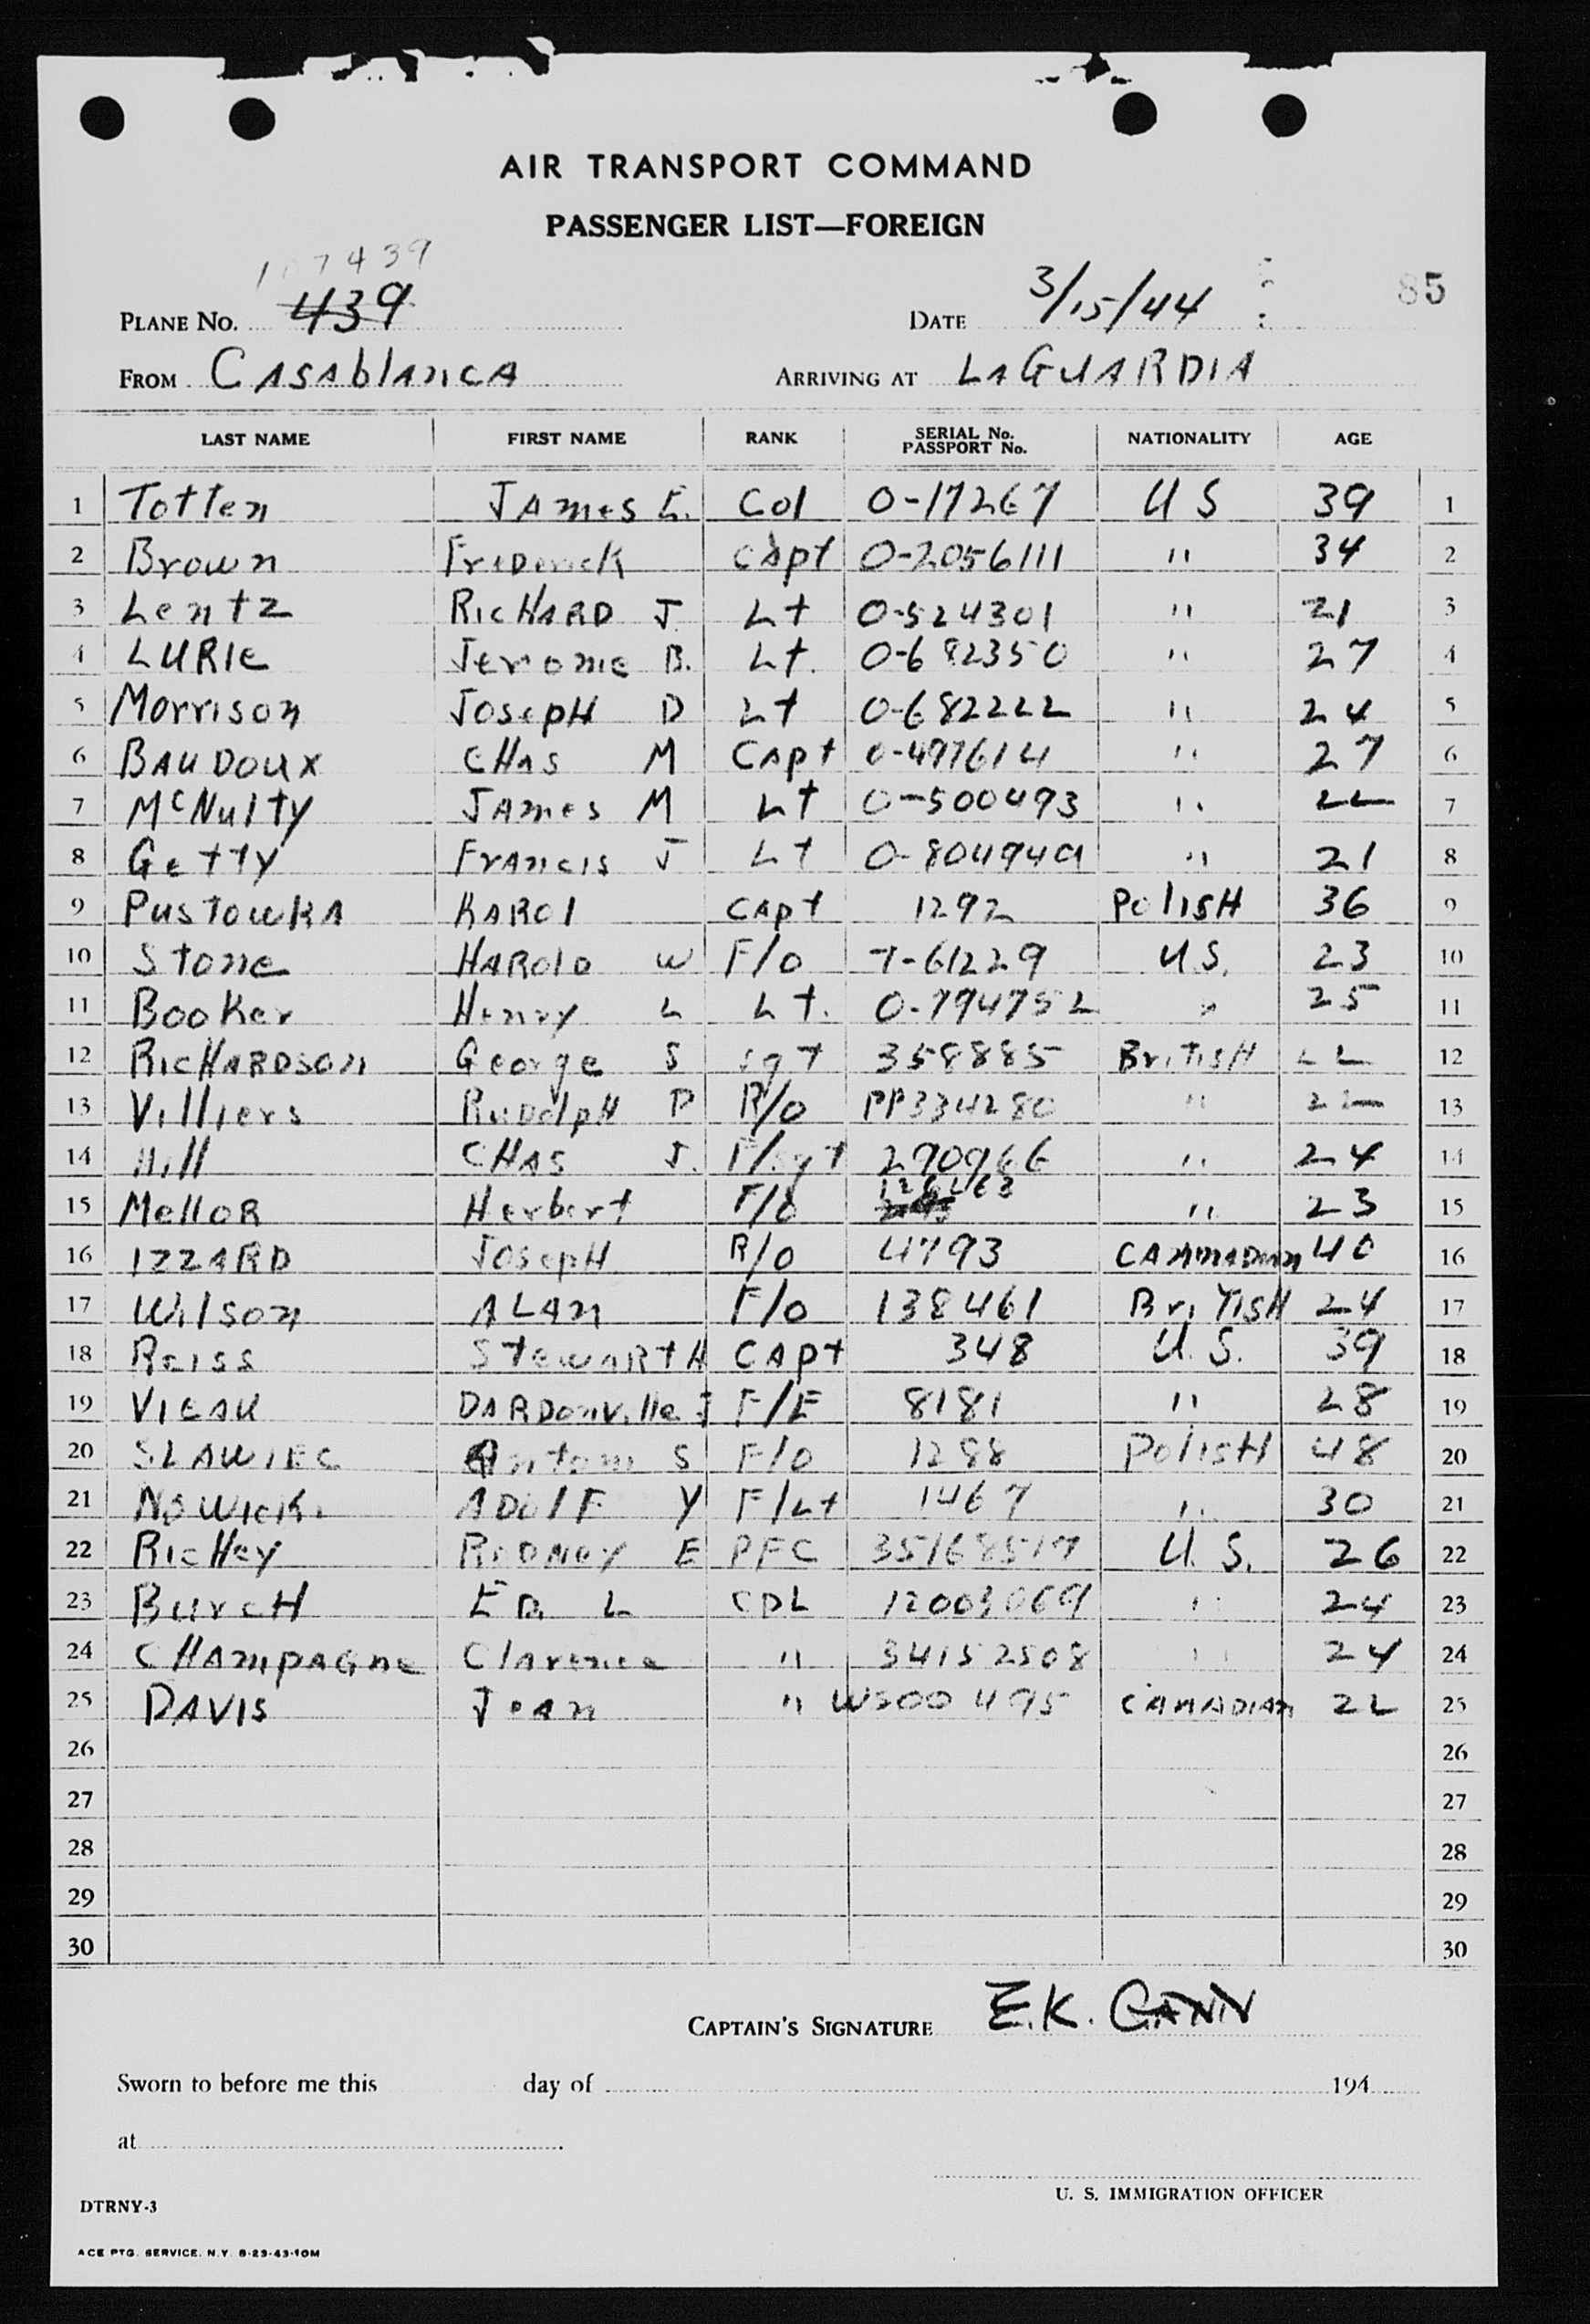 AIR TRANSPORT COMMAND
PASSENGER LIST—FOREIGN
107439
PLANE No. 439 DATE 3/15/44 85
FROM CASAblANCA ARRIVING AT LAGUARDIA
LAST NAME FIRST NAME RANK SERIAL No. PASSPORT No. NATIONALITY AGE
1 Totten JAmes E. Col 0-17267 U S 39 1
2 Brown FreDerick CApt 0-2056111 " 34 2
3 Lentz RicHARD J. Lt 0-524301 " 21 3
4 LURIe Jerome B. Lt. 0-682350 " 27 4
5 Morrison JosepH D Lt 0-682222 " 24 5
6 BAUDoux CHAs M CApt 0-497614 " 27 6
7 McNulty JAmes M Lt 0-500493 " 22 7
8 Getty FrAncis J Lt 0-804949 " 21 8
9 PusTowKA KARol CApt 1292 PolisH 36 9
10 Stone HARolD W F/o T-61229 U.S. 23 10
11 Booker Henry L Lt. 0-794752 " 25 11
12 RicHARDson George S sgt 358885 BritisH 22 12
13 Villiers RuDolpH P R/o PP334280 " 22 13
14 Hill CHAS J. F/sgt 290966 " 24 14
15 MelloR Herbert F/o " 23 15
16 IZZARD JosepH R/o 4793 CANNADIAN 40 16
17 Wilson ALAn F/o 138461 BriTisH 24 17
18 Reiss StewARt H CApt 348 U.S. 39 18
19 VIEAU DARDonville J F/E 8181 " 28 19
20 SLAWIEC Antoni S F/o 1288 PolisH 48 20
21 Nowicki ADolF Y F/Lt 1467 " 30 21
22 RicHey RoDNey E PFC 35168517 U.S. 26 22
23 BurcH ED. L CPL 12003069 " 24 23
24 CHAmpAGne Clarence " 34152508 " 24 24
25 DAVIS JeAn " W500495 CANADIAN 22 25
26 26
27 27
28 28
29 29
30 30
CAPTAIN'S SIGNATURE E.K. GANN
Sworn to before me this day of 194
at
U. S. IMMIGRATION OFFICER
DTRNY-3
ACE PTG. SERVICE. N.Y. 8-23-43-10M